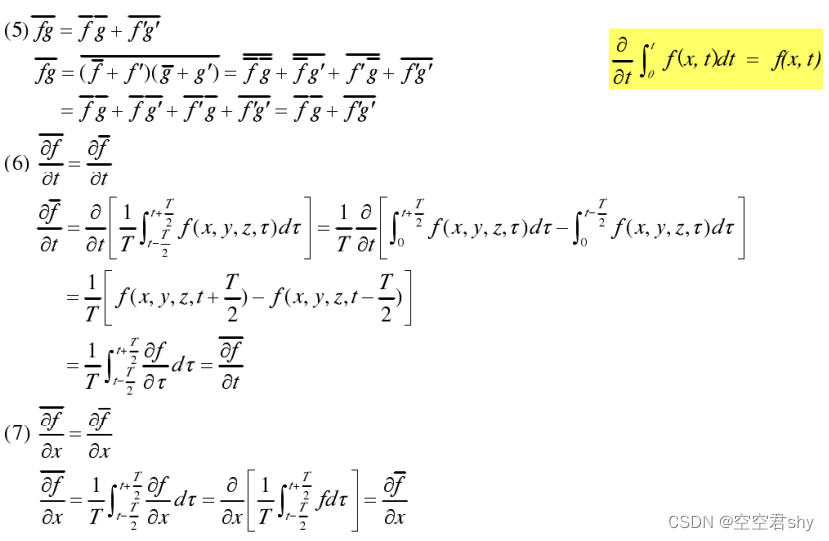 (5) \overline{fg} = \overline{f}\,\overline{g} + \overline{f'g'}
\frac{\partial}{\partial t}\int_{0}^{t} f(x,t)dt = f(x,t)
\overline{fg} = \overline{(\overline{f}+f')(\overline{g}+g')} = \overline{\overline{f}\,\overline{g}} + \overline{\overline{f}g'} + \overline{f'\overline{g}} + \overline{f'g'}
= \overline{f}\,\overline{g} + \overline{f}\,\overline{g'} + \overline{f'}\,\overline{g} + \overline{f'g'} = \overline{f}\,\overline{g} + \overline{f'g'}
(6) \frac{\overline{\partial f}}{\partial t} = \frac{\partial \overline{f}}{\partial t}
\frac{\partial \overline{f}}{\partial t} = \frac{\partial}{\partial t}\left[\frac{1}{T}\int_{t-\frac{T}{2}}^{t+\frac{T}{2}} f(x,y,z,\tau)d\tau\right] = \frac{1}{T}\frac{\partial}{\partial t}\left[\int_{0}^{t+\frac{T}{2}} f(x,y,z,\tau)d\tau - \int_{0}^{t-\frac{T}{2}} f(x,y,z,\tau)d\tau\right]
= \frac{1}{T}\left[f(x,y,z,t+\frac{T}{2}) - f(x,y,z,t-\frac{T}{2})\right]
= \frac{1}{T}\int_{t-\frac{T}{2}}^{t+\frac{T}{2}} \frac{\partial f}{\partial \tau}d\tau = \frac{\overline{\partial f}}{\partial t}
(7) \frac{\overline{\partial f}}{\partial x} = \frac{\partial \overline{f}}{\partial x}
\frac{\overline{\partial f}}{\partial x} = \frac{1}{T}\int_{t-\frac{T}{2}}^{t+\frac{T}{2}} \frac{\partial f}{\partial x}d\tau = \frac{\partial}{\partial x}\left[\frac{1}{T}\int_{t-\frac{T}{2}}^{t+\frac{T}{2}} fd\tau\right] = \frac{\partial \overline{f}}{\partial x}
CSDN @空空君shy